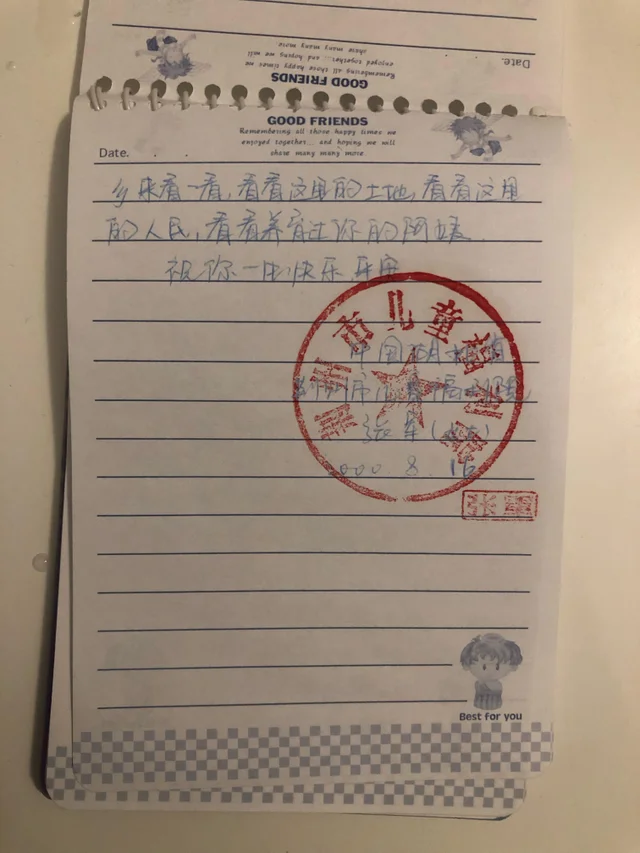 Date.
GOOD FRIENDS
Remembering all those happy times we
enjoyed together... and hoping we will
share many many more
GOOD FRIENDS
Remembering all those happy times we
enjoyed together... and hoping we will
share many many more.
Date. . .
乡来看一看,看看这里的土地,看看这里
的人民,看看养育过你的阿姨.
祝你一生快乐 平安
中国
市儿童福利院
张
2000.8.16
州市儿童福利院
张
Best for you